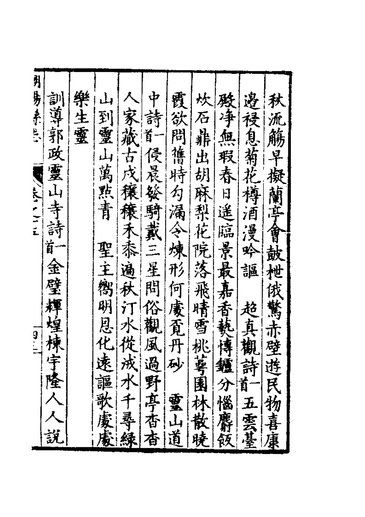 秋流觴早擬蘭亭會鼓枻俄驚赤壁遊民物喜康
邊祲息菊花樽酒漫吟謳　超真觀詩一首五雲臺
殿淨無瑕春日遥臨景最嘉香爇博鑪分惱麝飯
炊石鼎出胡麻梨花院落飛晴雪桃萼園林散曉
霞欲問舊時勾漏令煉形何處覓丹砂　靈山道
中詩一首侵晨發騎戴三星問俗觀風過野亭杳杳
人家藏古戍穰穰禾黍遍秋汀水從浅水千尋緑
山到靈山萬點青　聖主嚮明恩化遠謳歌處處
樂生靈
訓導郭政靈山寺詩一首金璧輝煌棟宇隆人人説
卷之五